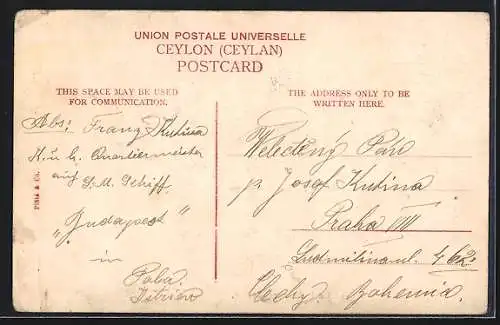 UNION POSTALE UNIVERSELLE
CEYLON (CEYLAN)
POSTCARD
THIS SPACE MAY BE USED
FOR COMMUNICATION.
THE ADDRESS ONLY TO BE
WRITTEN HERE.
Abs: Franz Kutina
K. u. k. Quartiermeister
auf S.M. Schiff
"Budapest"
in
Pola
Istrien
PLÂTÉ & Co.
Velectěný Pán
p. Josef Kutina
Praha VIII
Ludmilina ul. 462
Čechy Bohemia.